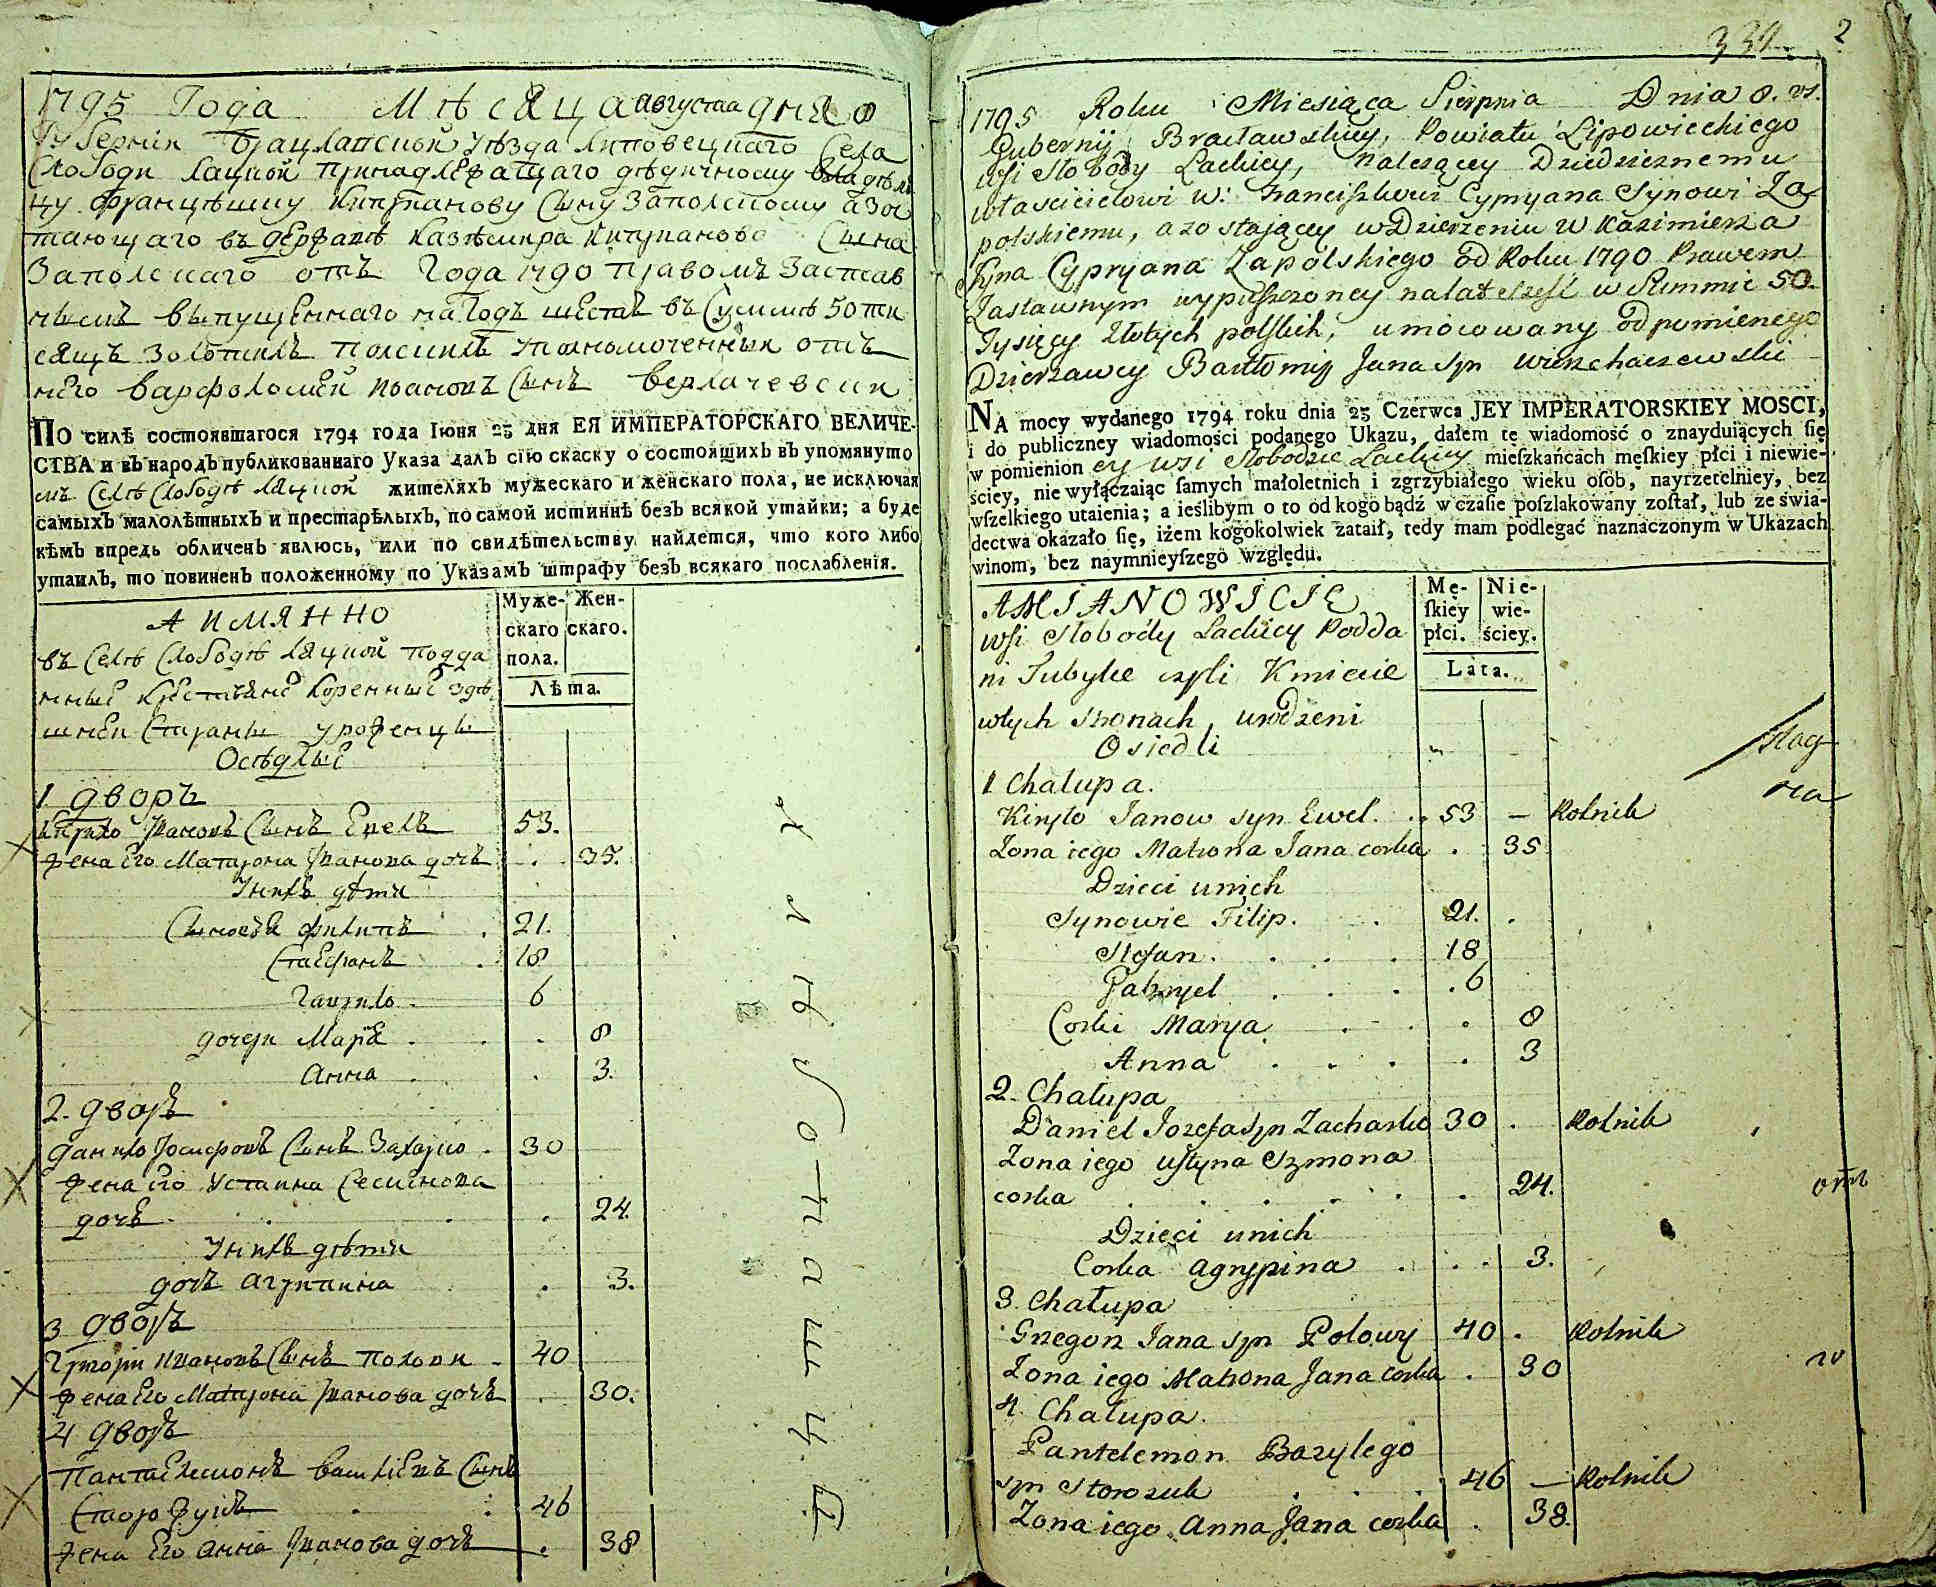 1795 Года Мѣсяца августа дня 8
Губерніи Брацлавской уѣзда Липовецкаго Села
Слободи Ляцкой принадлежащаго дѣдичному владѣль
цу Францѣшку Кипріанову Сыну Запольскому а Зос
тающаго въ держанѣ Казѣмира Кипріанова Сына
Запольскаго отъ Года 1790 правомъ Застав
нымъ выпущеннаго на Годъ шесть въ Суммѣ 50 ти
сящъ Золотихъ польскихъ уполномоченный отъ
него Варфоломей Ивановъ Сынъ Верхачевски
ПО силѣ состоявшагося 1794 года Іюня 25 дня ЕЯ ИМПЕРАТОРСКАГО ВЕЛИЧЕ-
СТВА и въ народъ публикованнаго Указа далъ сію скаску о состоящихъ въ упомянуто
мъ Селѣ Слободѣ Ляцкой жителяхъ мужескаго и женскаго пола, не исключая
самыхъ малолѣтныхъ и престарѣлыхъ, по самой истиннѣ безъ всякой утайки; а буде
кѣмъ впредь обличенъ явлюсь, или по свидѣтельству найдется, что кого либо
утаилъ, то повиненъ положенному по Указамъ штрафу безъ всякаго послабленія.
А ИМЯННО
Муже-
скаго
пола.
Жен-
скаго.
Лѣта.
въ Селѣ Слободѣ Ляцкой подда
нные Крестьяне Коренные здѣ
шней Страны уроженцы
Осѣдлые
1 дворъ
Кирило Ивановъ Сынъ Евелъ 53.
жена Его Матрона Иванова дочь . 35.
У нихъ дѣти
Сыновья Филипъ . 21.
Стефанъ . 18
Гаврило . 6
дочери Марія . . . 8
Анна . . 3.
2. дворъ
Данило Іосифовъ Сынъ Захарко . 30
жена Его Устинна Семенова
дочь . . . . 24.
У нихъ дѣти
дочь Агрипина . 3.
3 дворъ
Григори Ивановъ Сынъ Полови . 40
жена Его Матрона Иванова дочь . 30.
4 дворъ
Пантелемонъ Василіевъ Сынъ
Сторожукъ . . 46
жена Его Анна Иванова дочь . 38
331. 2
1795 Roku Miesiąca Sierpnia Dnia 8. vs.
Guberny Bracławskiey, Powiatu Lipowieckiego
wsi Słobody Lackiey, należącey Dziedzicznemu
właścicielowi w: Franciszkowi Cypryana Synowi Za
polskiemu, a zostającey w Dzierzeniu w Kazimierza
Syna Cypryana Zapolskiego od Roku 1790 Prawem
Zastawnym wypuszczoney na lat sześć w Summie 50.
Tysięcy Złotych polskich, umocowany od pomienego
Dzierzawcy Bartłomiy Jana syn Wierzchaczewski
NA mocy wydanego 1794 roku dnia 25 Czerwca JEY IMPERATORSKIEY MOSCI,
i do publiczney wiadomości podanego Ukazu, dałem tę wiadomość o znayduiących ſię
w pomienion ey wsi Słobodzie Lackiey mieſzkańcach męſkiey płci i niewie-
ściey, nie wyłączaiąc ſamych małoletnich i zgrzybiałego wieku oſób, nayrzetelniey, bez
wſzelkiego utaienia; a ieślibym o to od kogo bądź w czaſie poſzlakowany zoſtał, lub ze świa-
dectwa okazało ſię, iżem kogokolwiek zataił, tedy mam podlegać naznaczonym w Ukazach
winom, bez naymnieyſzego względu.
AMIANOWICIE
Mę-
ſkiey
płci.
Nie-
wie-
ściey.
Lata.
wsi Słobody Lackiey Podda
ni Tubylce czyli Kmiecie
w tych stronach, urodzeni
Osiedli
1 Chałupa.
Kiryło Janow syn Ewel. . 53 – Rolnik
Zona iego Matrona Jana corka . 35
Dzieci u nich
Synowie Filip. . 21. .
Stefan. . . . 18
Gabryel . . . 6
Corki Marya . . . . 8
Anna . . . . 3
2. Chałupa
Daniel Jozefa syn Zacharko 30 . Rolnik
Zona iego Ustyna Szymona
corka . . . . . . 24.
Dzieci u nich
Corka Agrypina . . . 3.
3. Chałupa
Grzegorz Jana syn Połowy 40 . Rolnik
Zona iego Matrona Jana corka . 30
4. Chałupa.
Pantelemon Bazylego
syn Storozuk . . . 46 – Rolnik
Zona iego Anna Jana corka . 38.